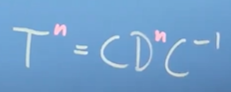 Tⁿ = CDⁿC⁻¹